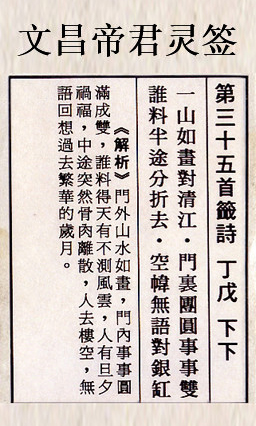 文昌帝君灵签
第三十五首籤詩 丁戊 下下
一山如畫對清江·門裏團圓事事雙
誰料半途分折去·空幃無語對銀缸
《解析》門外山水如畫，門內事事圓
滿成雙，誰料得天有不測風雲，人有旦夕
禍福，中途突然骨肉離散，人去樓空，無
語回想過去繁華的歲月。